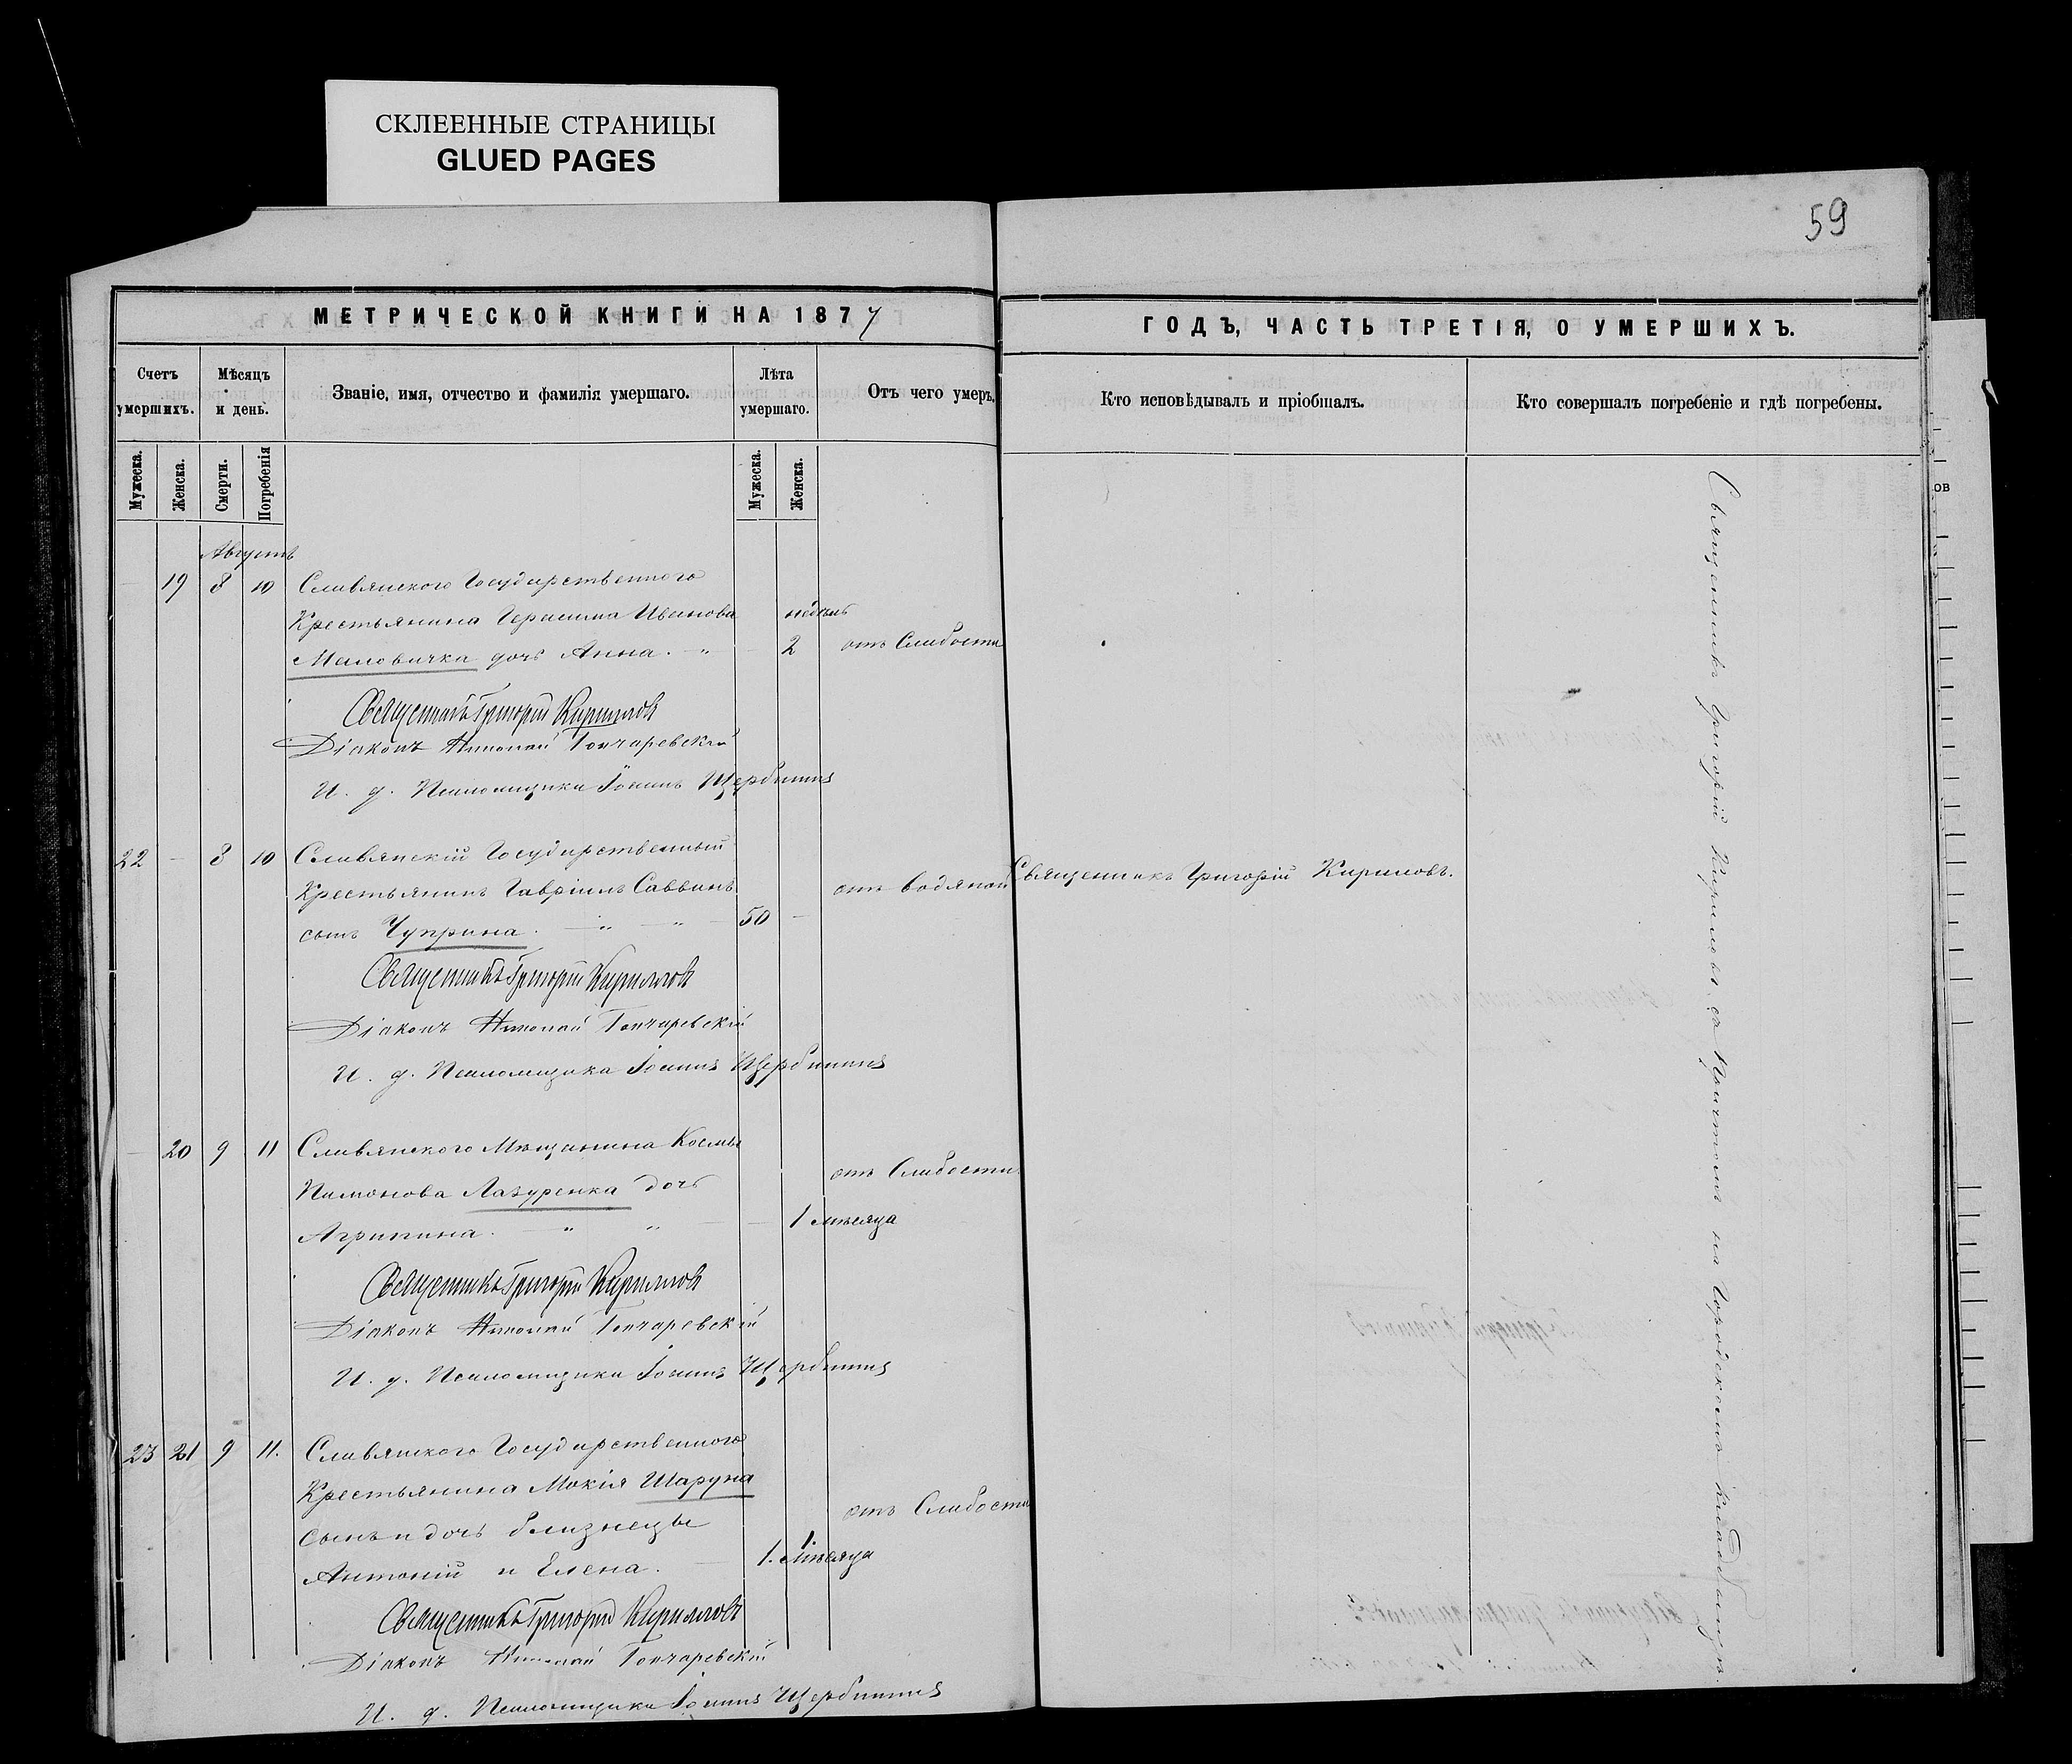 СКЛЕЕННЫЕ СТРАНИЦЫ
GLUED PAGES
59
МЕТРИЧЕСКОЙ КНИГИ НА 1877
ГОДЪ, ЧАСТЬ ТРЕТІЯ, О УМЕРШИХЪ.
Счетъ умершихъ.
Мѣсяцъ и день.
Званіе, имя, отчество и фамилія умершаго.
Лѣта умершаго.
Отъ чего умеръ.
Кто исповѣдывалъ и пріобщалъ.
Кто совершалъ погребеніе и гдѣ погребены.
Мужеска.
Женска.
Смерти.
Погребенія
Мужеска.
Женска.
Августъ
19 8 10 Славянскаго Государственного
Крестьянина Герасима Иванова недѣль
Маловичка дочь Анна. 2 отъ Слабости
Священникъ Григорій Кириловъ
Діаконъ Николай Гончаревскій
И. д. Псаломщика Іоаннъ Щербина
22 - 8 10 Славянскій Государственный
Крестьянинъ Гавріилъ Саввинъ отъ водяной Священникъ Григорій Кириловъ.
сынъ Чуприна. 50 -
Священникъ Григорій Кириловъ
Діаконъ Николай Гончаревскій
И. д. Псаломщика Іоаннъ Щербина
- 20 9 11 Славянскаго Мѣщанина Космы
Пимонова Лазуренка дочь отъ Слабости
Агрипина. 1 мѣсяца
Священникъ Григорій Кириловъ
Діаконъ Николай Гончаревскій
И. д. Псаломщика Іоаннъ Щербина
23 21 9 11. Славянскаго Государственного
Крестьянина Мокія Шаруна
сынъ и дочь близнецы отъ Слабости
Антоній и Елена. 1. 1. мѣсяца
Священникъ Григорій Кириловъ
Діаконъ Николай Гончаревскій
И. д. Псаломщика Іоаннъ Щербина
Священникъ Григорій Кириловъ съ Причтомъ на Городскомъ кладбищѣ.